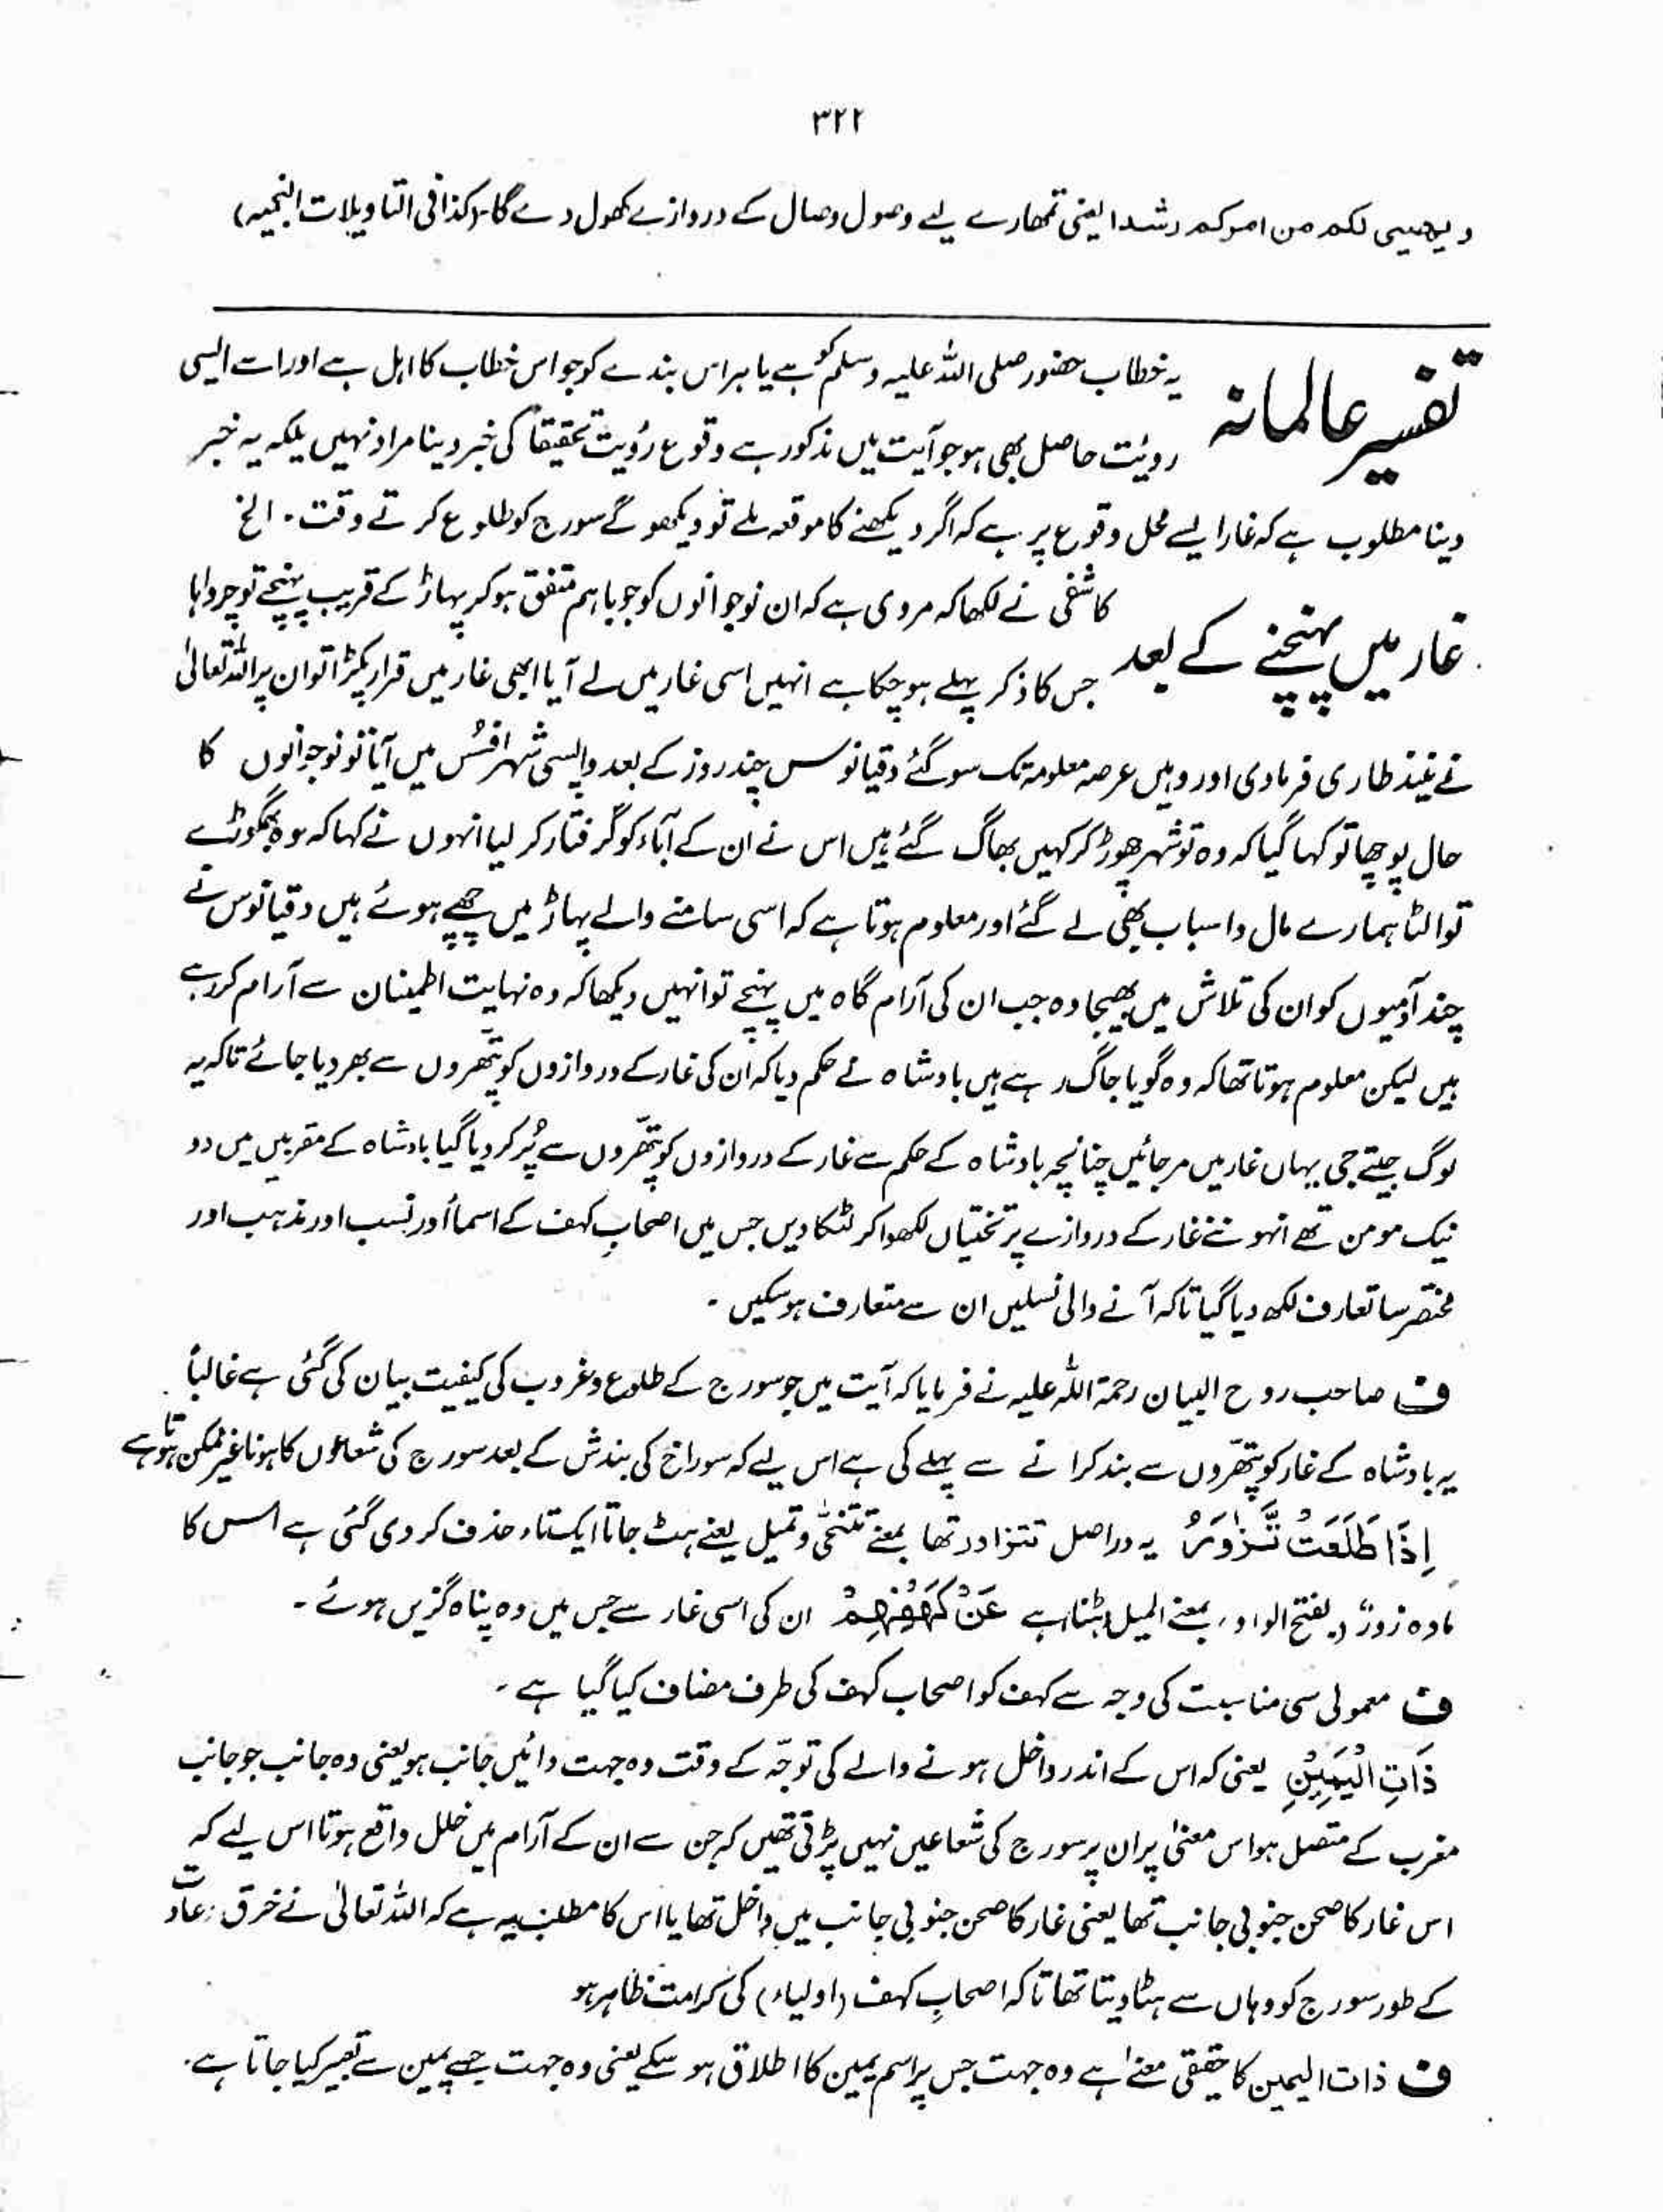 ۳۲۲
ویھییی لکم من امرکم رشدا یعنی تمھارے لیے وصول وصال کے دروازے کھول دے گا۔ (کذا فی التاویلات النجمیہ)
تفسیر عالمانہ
یہ خطاب حضور صلی اللہ علیہ وسلم کو ہے یا ہر اس بندے کو جو اس خطاب کا اہل ہے اور اسے ایسی
رویٔت حاصل بھی ہو جو آیت میں مذکور ہے وقوع رؤیت تحقیقاً کی خبر دینا مراد نہیں بلکہ یہ خبر
دینا مطلوب ہے کہ غار ایسے محل وقوع پر ہے کہ اگر دیکھنے کا موقعہ ملے تو دیکھو گے سورج کو طلوع کرتے وقت۔ الخ
غار میں پہنچنے کے بعد
کاشفی نے لکھا کہ مروی ہے کہ ان نوجوانوں کو جو باہم متفق ہو کر پہاڑ کے قریب پہنچے تو چرواہا
جس کا ذکر پہلے ہو چکا ہے انہیں اسی غار میں لے آیا ابھی غار میں قرار پکڑا تو ان پر اللہ تعالیٰ
نے نیند طاری فرما دی اور وہیں عرصہ معلومہ تک سو گئے دقیانوس چند روز کے بعد واپسی شہر افسُس میں آیا تو نوجوانوں کا
حال پوچھا تو کہا گیا کہ وہ تو شہر چھوڑ کر کہیں بھاگ گئے ہیں اس نے ان کے آباء کو گرفتار کر لیا انہوں نے کہا کہ وہ بھگوڑے
تو الٹا ہمارے مال و اسباب بھی لے گئے اور معلوم ہوتا ہے کہ اسی سامنے والے پہاڑ میں چھپے ہوئے ہیں دقیانوس نے
چند آدمیوں کو ان کی تلاش میں بھیجا وہ جب ان کی آرام گاہ میں پہنچے تو انہیں دیکھا کہ وہ نہایت اطمینان سے آرام کر رہے
ہیں لیکن معلوم ہوتا تھا کہ وہ گویا جاگ رہے ہیں بادشاہ نے حکم دیا کہ ان کی غار کے دروازوں کو پتھروں سے بھر دیا جائے تاکہ یہ
لوگ جیتے جی یہاں غار میں مر جائیں چنانچہ بادشاہ کے حکم سے غار کے دروازوں کو پتھّروں سے پُر کر دیا گیا بادشاہ کے مقربین میں دو
نیک مومن تھے انہونے غار کے دروازے پر تختیاں لکھوا کر لٹکا دیں جس میں اصحابِ کہف کے اسمأ اور نسب اور مذہب اور
مختصر سا تعارف لکھ دیا گیا تاکہ آنے والی نسلیں ان سے متعارف ہو سکیں ۔
ف صاحب روح البیان رحمۃ اللہ علیہ نے فرمایا کہ آیت میں جو سورج کے طلوع و غروب کی کیفیت بیان کی گئی ہے غالباً
یہ بادشاہ کے غار کو پتھّروں سے بند کرانے سے پہلے کی ہے اس لیے کہ سوراخ کی بندش کے بعد سورج کی شعاؤں کا ہونا غیر ممکن ہوتا ہے
اِذَا طَلَعَتْ تَّزٰوَرُ یہ دراصل تتزاور تھا بمعنے تتنحّٰی و تمیل یعنے ہٹ جاتا ایک تاء حذف کر دی گئی ہے اس کا
مادہ زورٌ (بفتح الواو) بمعنے المیل ہٹنا ہے عَنْ كَهْفِهِمْ ان کی اسی غار سے جس میں وہ پناہ گزیں ہوئے ۔
ف معمولی سی مناسبت کی وجہ سے کہف کو اصحاب کہف کی طرف مضاف کیا گیا ہے ۔
ذَاتَ الْيَمِيْنِ یعنی کہ اس کے اندر داخل ہونے والے کی توجّہ کے وقت وہ جہت دائیں جانب ہو یعنی وہ جانب جو جانب
مغرب کے متصل ہو اس معنیٰ پر ان پر سورج کی شعاعیں نہیں پڑتی تھیں کہ جن سے ان کے آرام میں خلل واقع ہوتا اس لیے کہ
اس غار کا صحن جنوبی جانب تھا یعنی غار کا صحن جنوبی جانب میں داخل تھا یا اس کا مطلب یہ ہے کہ اللہ تعالیٰ نے خرق عادت
کے طور سورج کو وہاں سے ہٹا دیتا تھا تاکہ اصحابِ کہف (اولیاء) کی کرامت ظاہر ہو
ف ذات الیمین کا حقیقی معنےٰ ہے وہ جہت جس پر اسم یمین کا اطلاق ہو سکے یعنی وہ جہت جسے یمین سے تعبیر کیا جاتا ہے۔